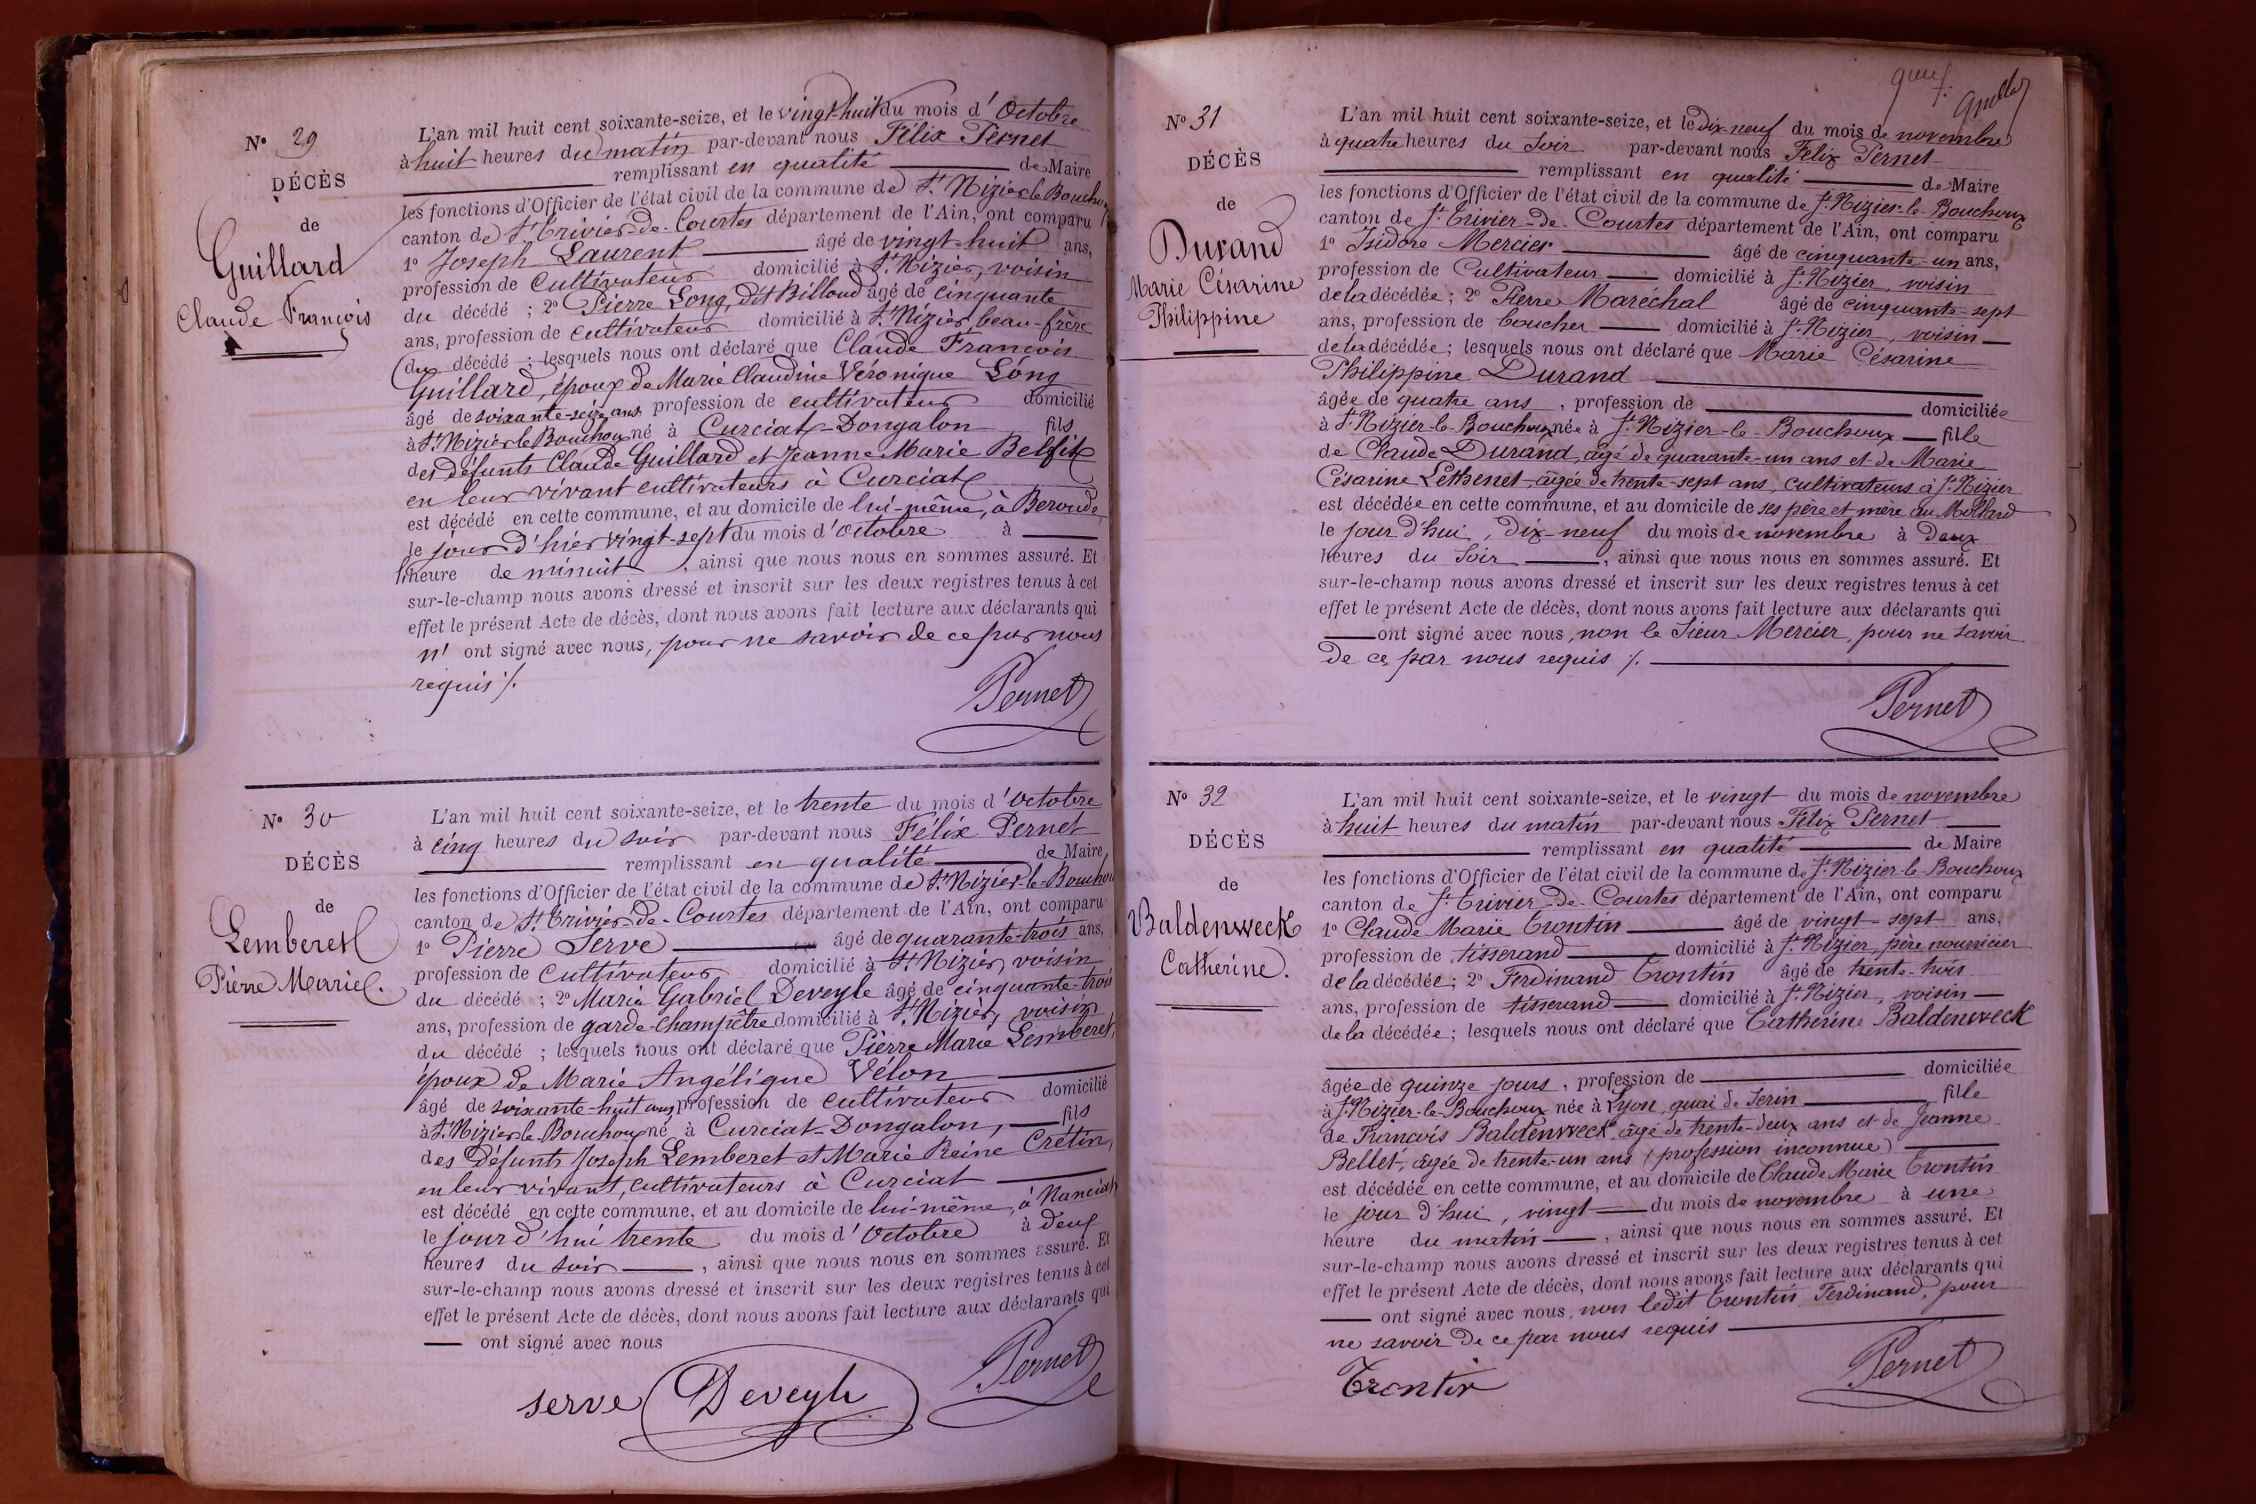 N° 29
DÉCÈS
de
Guillard
Claude François
L'an mil huit cent soixante-seize, et le vingt-huit du mois d'Octobre
à huit heures du matin par-devant nous Félix Pernet
remplissant en qualité de Maire
les fonctions d'Officier de l'état civil de la commune de St Nizier le Bouchoux
canton de St Trivier-de-Courtes département de l'Ain, ont comparu
1° Joseph Laurent âgé de vingt-huit ans,
profession de cultivateur domicilié à St Nizier, voisin
du décédé ; 2° Pierre Long, dit Billoud âgé de cinquante
ans, profession de cultivateur domicilié à St Nizier, beau-frère
du décédé ; lesquels nous ont déclaré que Claude François
Guillard, époux de Marie Claudine Véronique Long
âgé de soixante-seize ans profession de cultivateur domicilié
à St Nizier le Bouchoux né à Curciat-Dongalon fils
des défunts Claude Guillard et Jeanne Marie Belfit
en leur vivant cultivateurs à Curciat
est décédé en cette commune, et au domicile de lui-même, à Beroude,
le jour d'hier vingt-sept du mois d'octobre à
l'heure de minuit, ainsi que nous nous en sommes assuré. Et
sur-le-champ nous avons dressé et inscrit sur les deux registres tenus à cet
effet le présent Acte de décès, dont nous avons fait lecture aux déclarants qui
n' ont signé avec nous, pour ne savoir de ce par nous
requis %.
Pernet
N° 30
DÉCÈS
de
Lemberet
Pierre Marie.
L'an mil huit cent soixante-seize, et le trente du mois d'octobre
à cinq heures du soir par-devant nous Félix Pernet
remplissant en qualité de Maire
les fonctions d'Officier de l'état civil de la commune de St Nizier-le-Bouchou
canton de St Trivier-de-Courtes département de l'Ain, ont comparu
1° Pierre Serve âgé de quarante-trois ans,
profession de cultivateur domicilié à St Nizier, voisin
du décédé ; 2° Marie Gabriel Deveyle âgé de cinquante-trois
ans, profession de garde-champêtre domicilié à St Nizier, voisin
du décédé ; lesquels nous ont déclaré que Pierre Marie Lemberet,
époux de Marie Angélique Vélon
âgé de soixante-huit ans profession de cultivateur domicilié
à St Nizier le Bouchoux né à Curciat-Dongalon, fils
des défunts Joseph Lemberet et Marie Reine Crétin,
en leur vivant, cultivateurs à Curciat
est décédé en cette commune, et au domicile de lui-même, à Nanciat
le jourd'hui trente du mois d'octobre à deux
heures du soir, ainsi que nous nous en sommes assuré. Et
sur-le-champ nous avons dressé et inscrit sur les deux registres tenus à cet
effet le présent Acte de décès, dont nous avons fait lecture aux déclarants qui
ont signé avec nous
Serve Deveyle Pernet
N° 31
DÉCÈS
de
Durand
Marie Césarine
Philippine
L'an mil huit cent soixante-seize, et le dix-neuf du mois de novembre
à quatre heures du soir par-devant nous Félix Pernet
remplissant en qualité de Maire
les fonctions d'Officier de l'état civil de la commune de St Nizier-le-Bouchoux
canton de St Trivier-de-Courtes département de l'Ain, ont comparu
1° Isidore Mercier âgé de cinquante-un ans,
profession de Cultivateur domicilié à St Nizier, voisin
de la décédée ; 2° Pierre Maréchal âgé de cinquante-sept
ans, profession de boucher domicilié à St Nizier, voisin
de la décédée ; lesquels nous ont déclaré que Marie Césarine
Philippine Durand
âgée de quatre ans, profession de domiciliée
à St Nizier-le-Bouchoux née à St Nizier-le-Bouchoux fille
de Claude Durand, âgé de quarante-un ans et de Marie
Césarine Lethenet âgée de trente-sept ans, cultivateurs à St Nizier
est décédée en cette commune, et au domicile de ses père et mère au Mollard
le jour d'hui, dix-neuf du mois de novembre à deux
heures du soir, ainsi que nous nous en sommes assuré. Et
sur-le-champ nous avons dressé et inscrit sur les deux registres tenus à cet
effet le présent Acte de décès, dont nous avons fait lecture aux déclarants qui
ont signé avec nous, non le sieur Mercier, pour ne savoir
de ce par nous requis %.
Pernet
N° 32
DÉCÈS
de
Baldenweck
Catherine.
L'an mil huit cent soixante-seize, et le vingt du mois de novembre
à huit heures du matin par-devant nous Félix Pernet
remplissant en qualité de Maire
les fonctions d'Officier de l'état civil de la commune de St Nizier-le-Bouchoux
canton de St Trivier-de-Courtes département de l'Ain, ont comparu
1° Claude Marie Trontin âgé de vingt-sept ans,
profession de tisserand domicilié à St Nizier, père nourricier
de la décédée ; 2° Ferdinand Trontin âgé de trente-trois
ans, profession de tisserand domicilié à St Nizier, voisin
de la décédée ; lesquels nous ont déclaré que Catherine Baldenweck
âgée de quinze jours, profession de domiciliée
à St Nizier-le-Bouchoux née à Lyon, quai de Serin fille
de François Baldenweck âgé de trente-deux ans et de Jeanne
Bellet, âgée de trente-un ans (profession inconnue)
est décédée en cette commune, et au domicile de Claude Marie Trontin
le jour d'hui, vingt du mois de novembre à une
heure du matin, ainsi que nous nous en sommes assuré. Et
sur-le-champ nous avons dressé et inscrit sur les deux registres tenus à cet
effet le présent Acte de décès, dont nous avons fait lecture aux déclarants qui
ont signé avec nous, non ledit Trontin Ferdinand, pour
ne savoir de ce par nous requis
Trontin Pernet